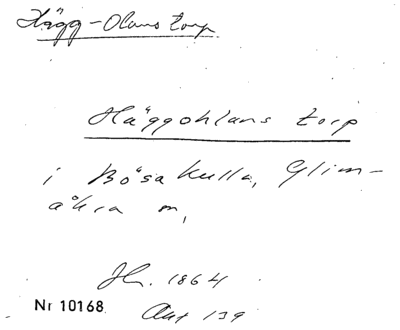 Hägg-Olans torp
Häggohlans torp
i Bösakulla, Glim-
åkra m,
Jh. 1864
Nr 10168
Akt 139